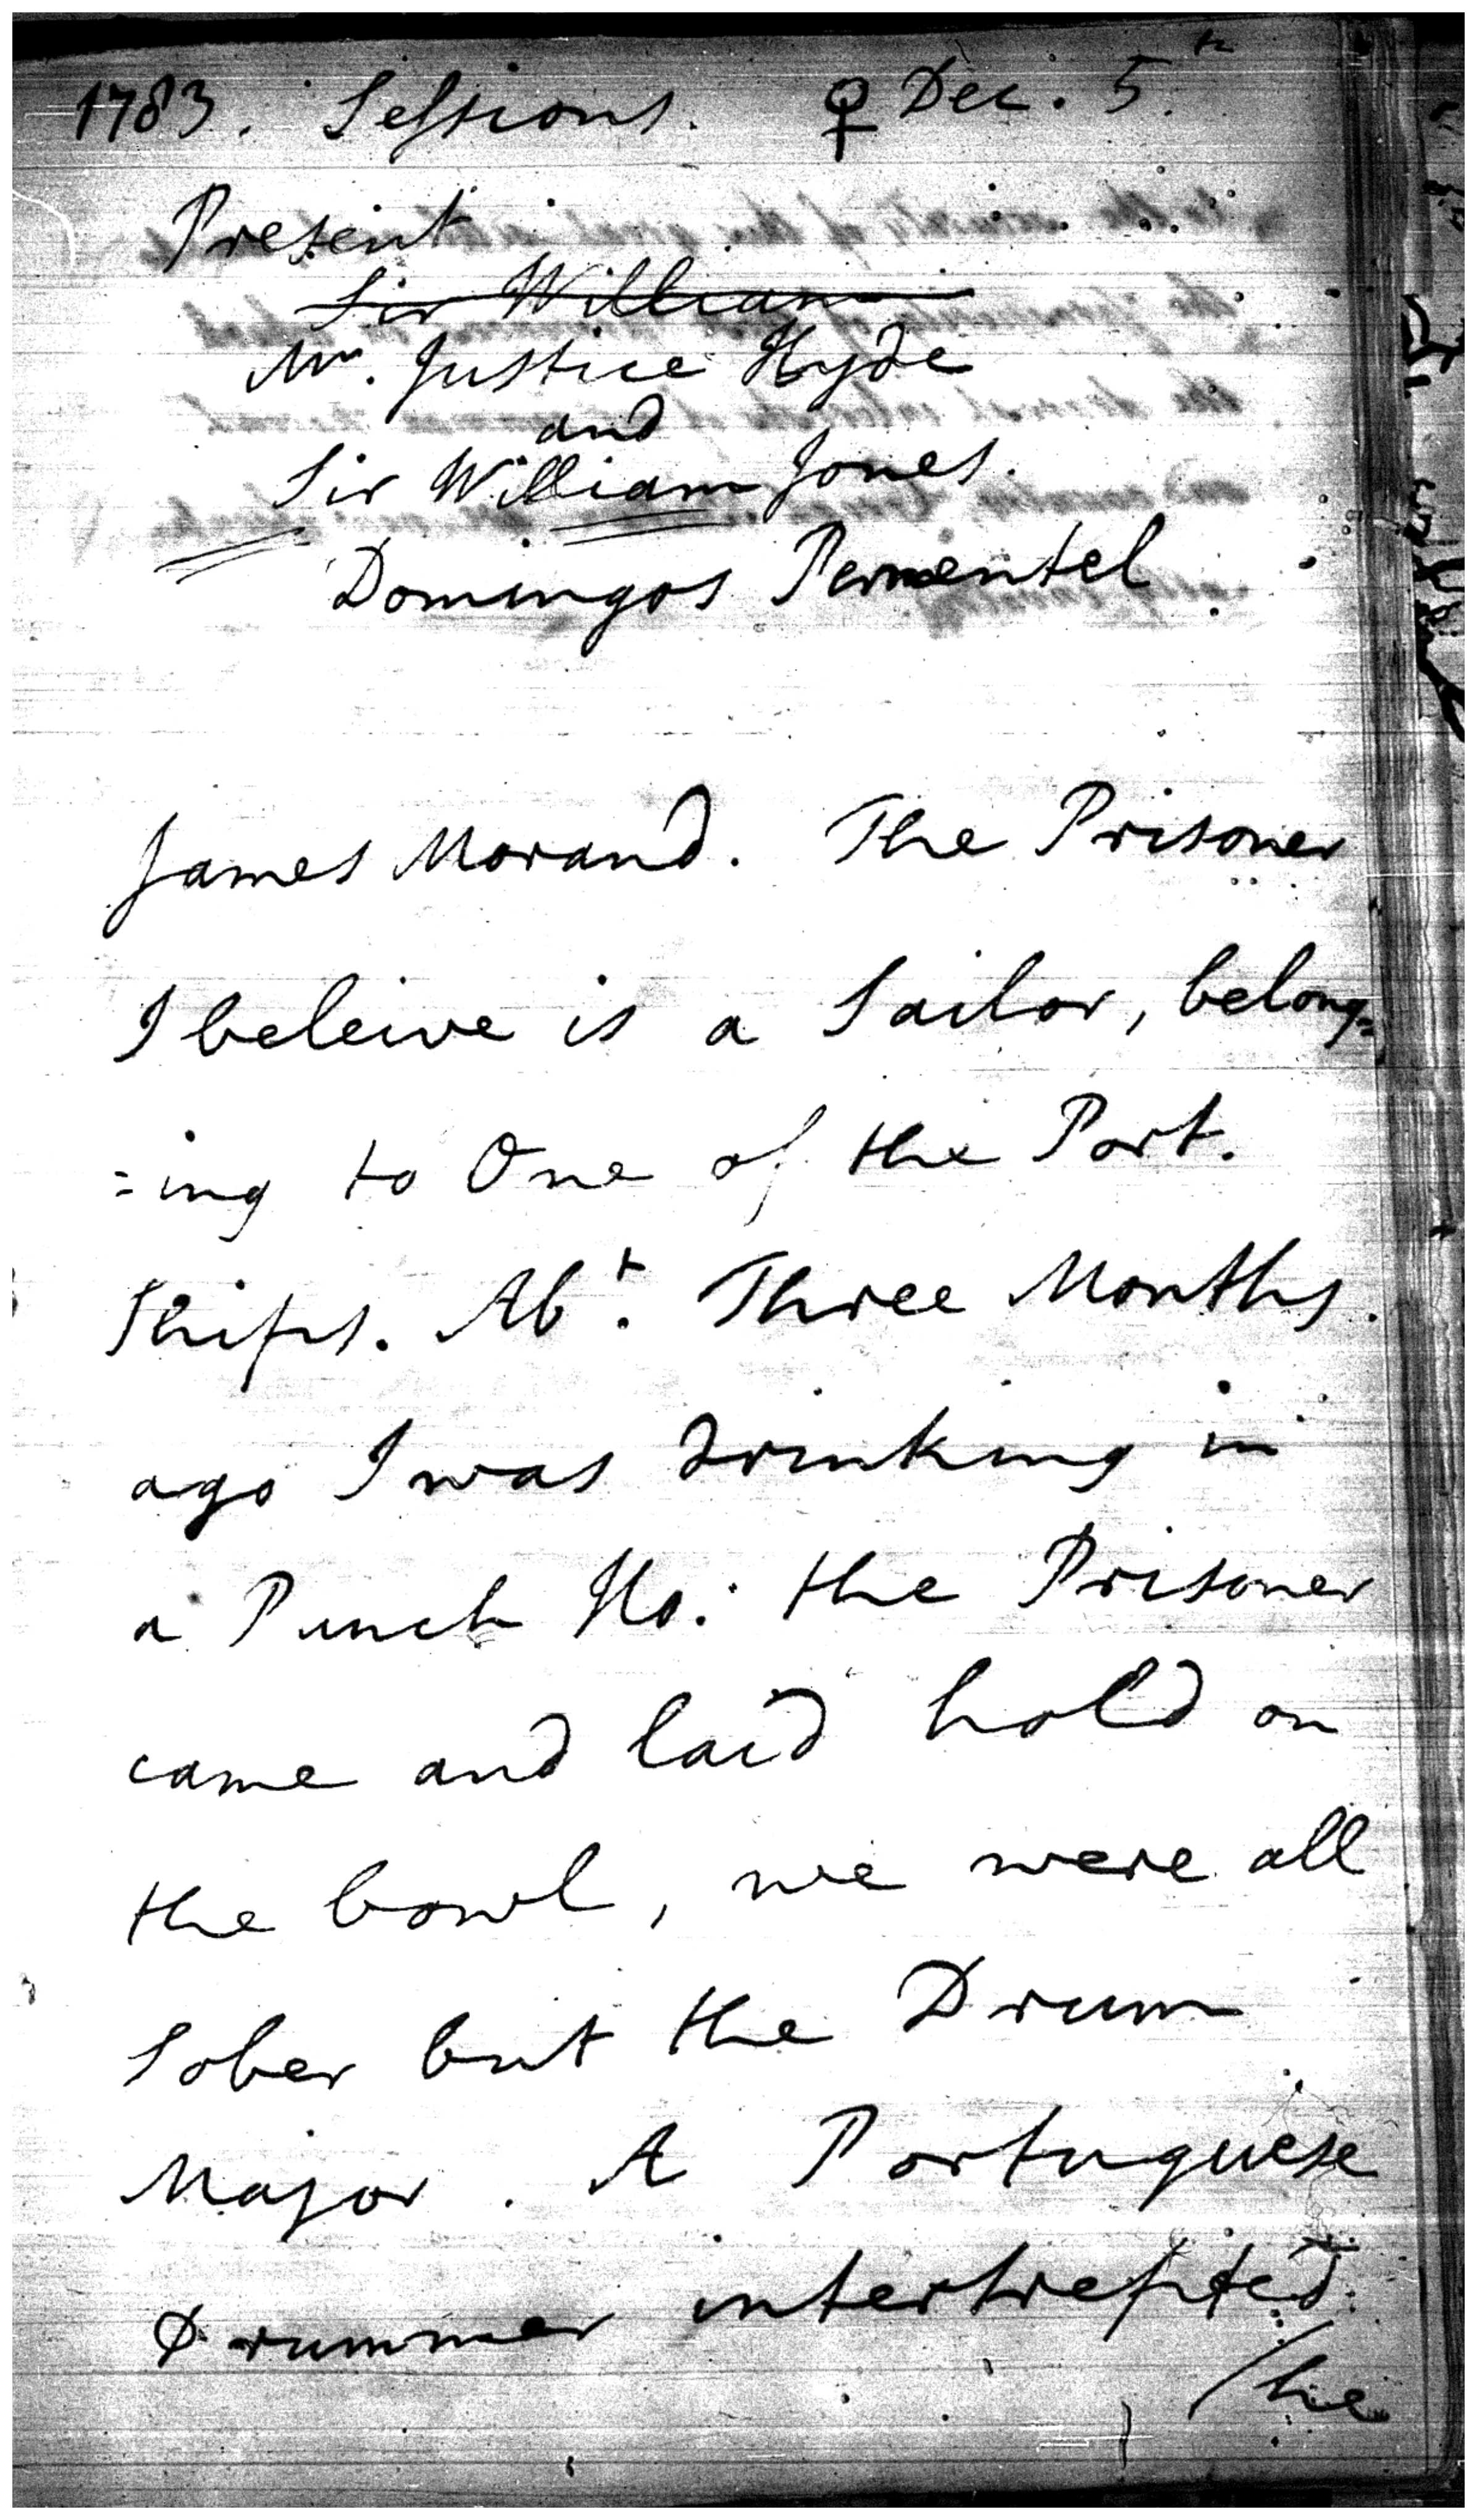 1783. Sessions. ♀ Dec. 5th
Present
Sir William
Mr. Justice Hyde
and
Sir William Jones.
Domingos Permentel
James Morand. The Prisoner
I beleive is a Sailor, belong=
=ing to One of the Port.
Ships. Abt. Three Months
ago I was drinking in
a Punch Ho: the Prisoner
came and laid hold on
the bowl, we were all
Sober but the Drum
Major. A Portuguese
Drummer
/he